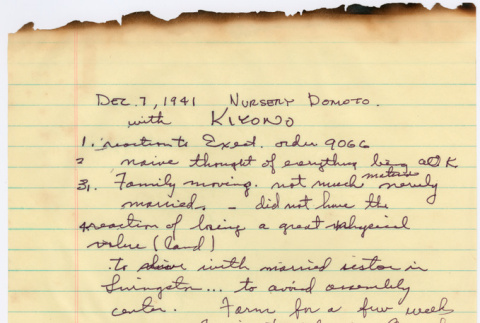 DEC. 7, 1941 NURSERY DOMOTO.
with KIYONO
1. reaction to Exed. order 9066
2 naive thought of everything being OK
3. Family moving. not much material merely
married. - did not have the
4 reaction of losing a great physical
value (land)
to live with married sister in
Livingston... to avoid assembly
center. Farm for a few weeks